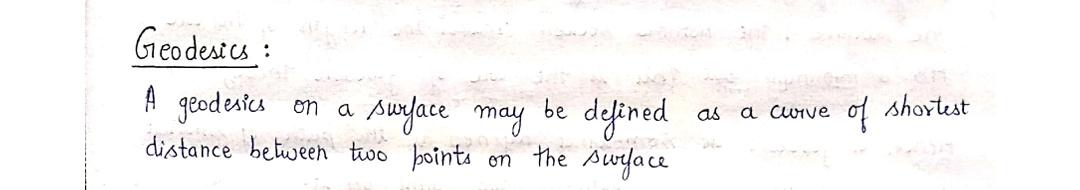 Geodesics :
A geodesics on a surface may be defined as a curve of shortest
distance between two points on the surface